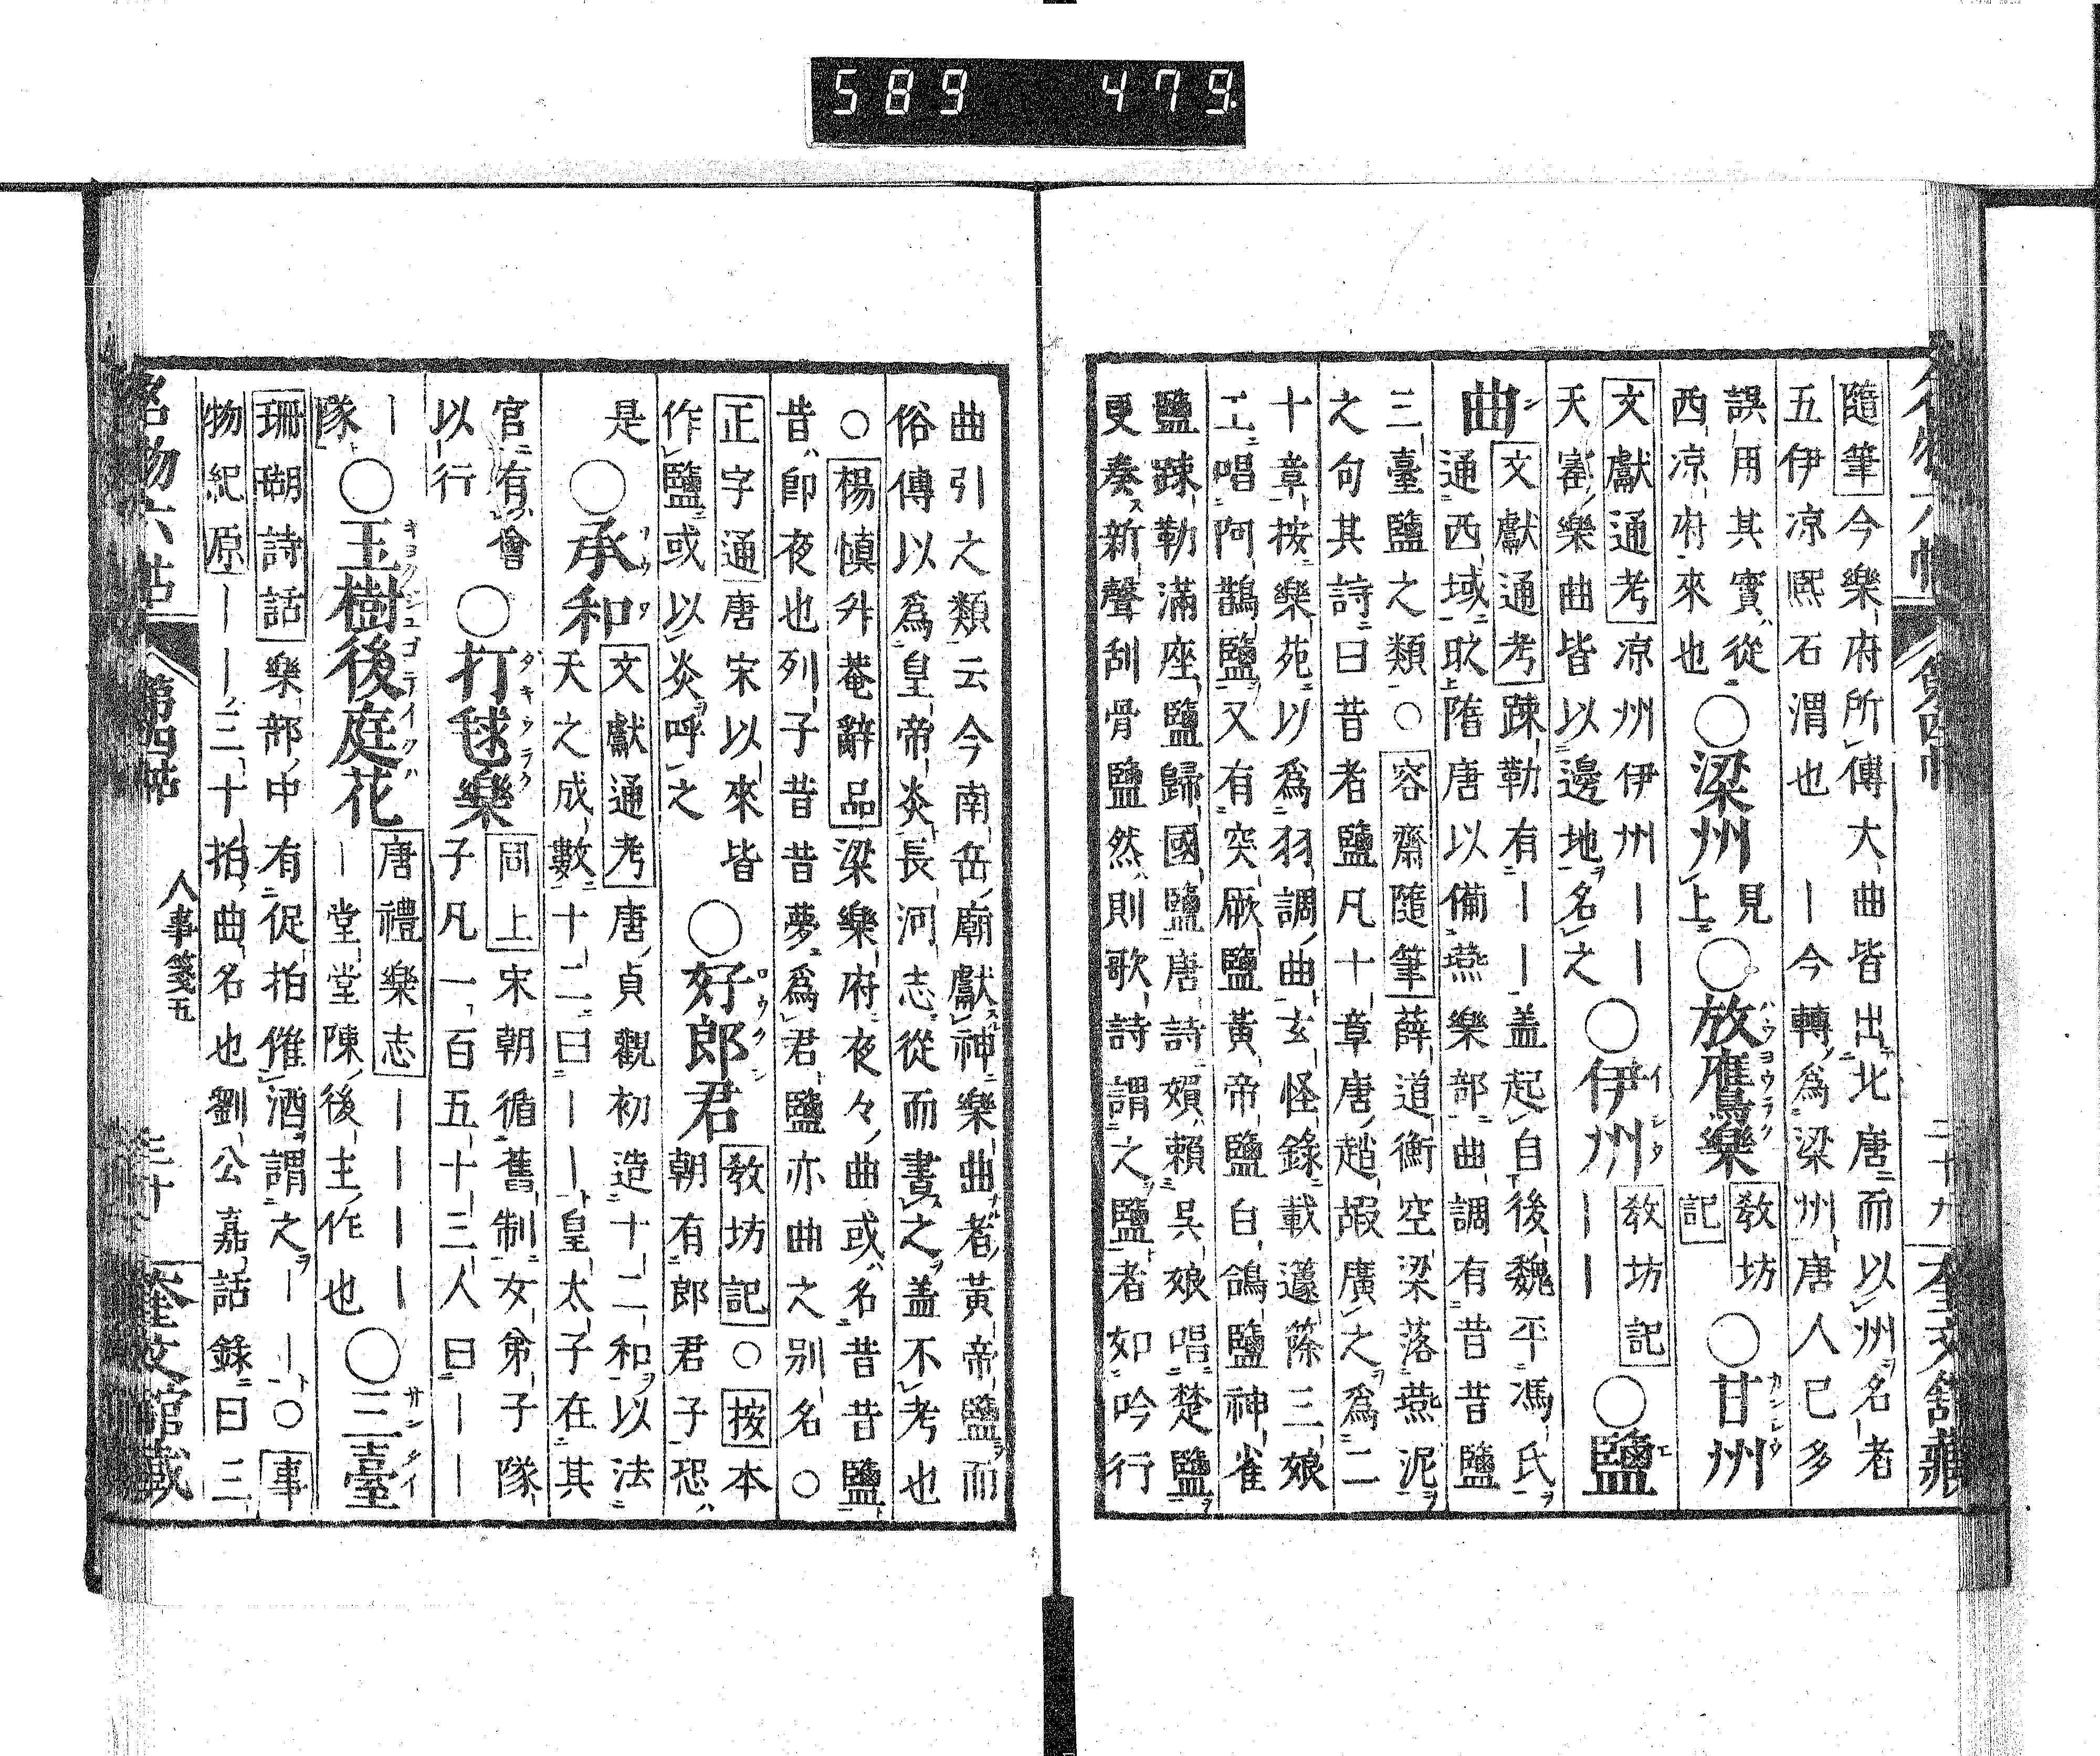 589 479.
隨筆今樂府所傳大曲皆出北唐而以州名者
五伊凉熈石渭也｜今轉爲梁州唐人已多
誤用其實從
西凉府來也〇梁州見上〇放鷹樂教坊記〇甘州
文獻通考凉州伊州｜｜
天寳樂曲皆以邊地名之〇伊州教坊記｜｜〇鹽
曲文獻通考踈勒有｜｜盖起自後魏平馮氏
通西域㪅隋唐以備燕樂部曲調有昔昔鹽
三臺鹽之類○容齋隨筆薛道衡空梁落燕泥
之句其詩曰昔者鹽凡十章唐趙嘏廣之爲二
十章按樂苑以爲羽調曲玄怪錄載籧篨三娘
工唱阿鵲鹽又有突厥鹽黃帝鹽白鴿鹽神雀
鹽踈勒滿座鹽歸國鹽唐詩媚賴吳娘唱楚鹽
更奏新聲刮骨鹽然則歌詩謂之鹽者如吟行
曲引之類云今南岳廟獻神樂曲者黃帝鹽而
俗傳以爲皇帝炎長河志從而書之盖不考也
○楊慎外菴辭品梁樂府夜々曲或名昔昔鹽
昔即夜也列子昔昔夢爲君鹽亦曲之别名○
正字通唐宋以來皆
作鹽或以炎呼之〇好郎君教坊記○按本
朝有郎君子恐
是〇承和文獻通考唐貞觀初造十二和以法
天之成數十二曰｜｜皇太子在其
官有會
以行〇打毬樂同上宋朝循舊制女弟子隊
子凡一百五十三人曰｜｜
｜
隊〇玉樹後庭花唐禮樂志｜｜｜｜
｜堂堂陳後主作也〇三臺
珊瑚詩話樂部中有促拍催酒謂之｜｜○事
物紀原｜｜三十拍曲名也劉公嘉話錄曰三
名物六帖
第四帖
人事箋五
三十
奎文館藏